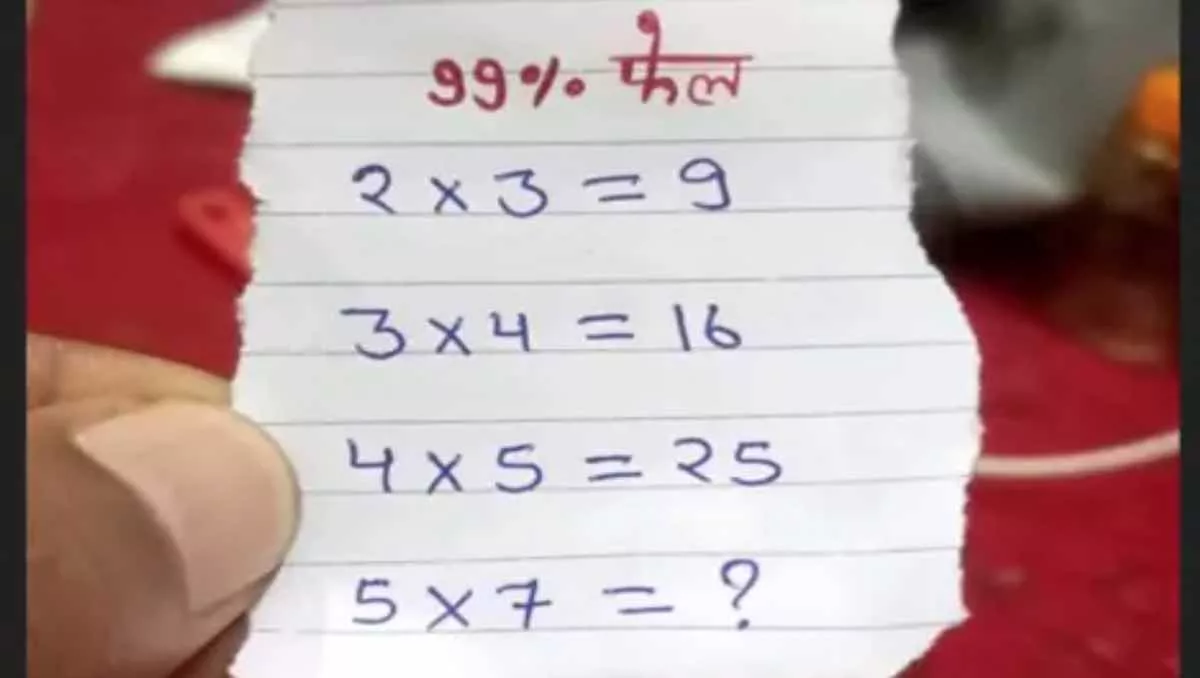 99% फेल
2 × 3 = 9
3 × 4 = 16
4 × 5 = 25
5 × 7 = ?